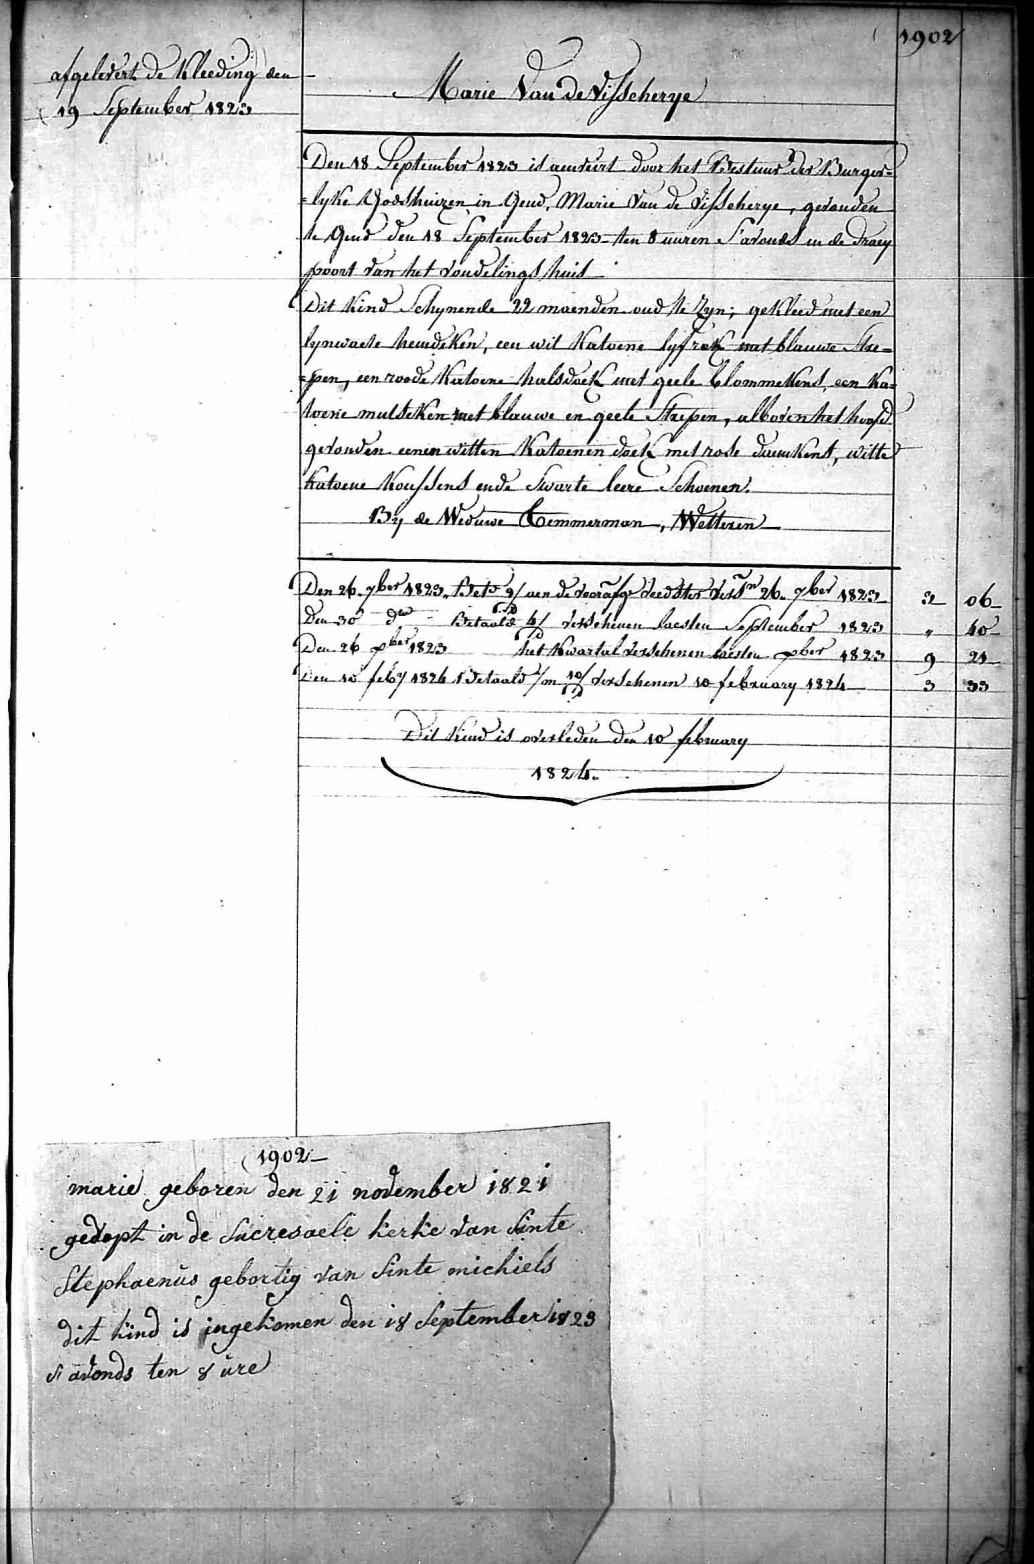 1902
afgelevert de Kleeding den
19 September 1823
Marie Van de Visscherye
Den 18 September 1823 is aenveirt door het Bestuur der Burger=
=lyke Godshuizen in Gend, Marie Van de Visscherye, gevonden
te Gend den 18 September 1823 ten 8 uuren S'avonds in de Draey
poort van het vondelings huis
Dit Kind Schynende 22 maenden oud te Zyn; gekleed met een
lynwaete hemdeken, een wit Katoene lyfrok met blauwe Stre=
=pen, een roode Katoene halsdoek met geele blommekens, een Ka=
toene mutseken met blauwe en geele Strepen, alboven het hoofd
gevonden eenen witten Katoenen doek met rode daemkens, witte
Katoene Koussens ende Swarte leere Schoenen.
By de Weduwe Temmerman, Wetteren
Den 26 7ber 1823 aen de 26 7ber 1823 2 06
Den 30 do Betaald verschenen laesten September 1823 " 40
Den 26 xber 1823 het Kwartal verschenen laesten xber 1823 9 21
Den 10 feby 1824 Betaald 1/m 10/ verschenen 10 february 1824 3 33
Dit Kind is overleden den 10 february
1824.
1902
marie geboren den 21 november 1821
gedopt in de Sucresaele kerke van Sinte
Stephaenus gebortig van Sinte michiels
dit kind is ingekomen den 18 September 1823
s avonds ten 8 ure